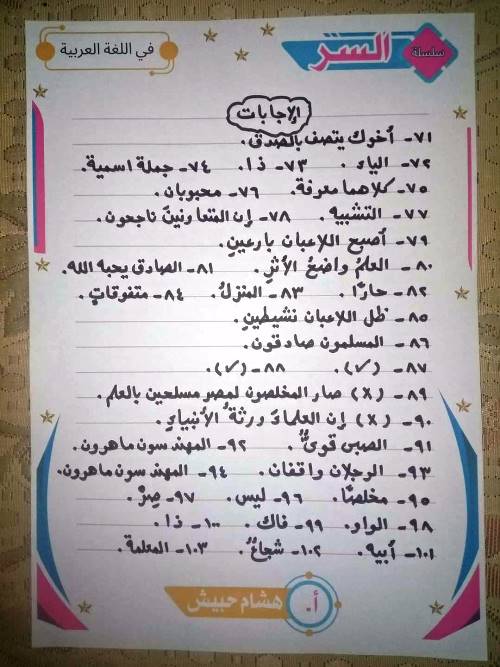 سلسلة السر
في اللغة العربية
الإجابات
٧١- أخوك يتصف بالصدق.
٧٢- الياء. ٧٣- ذا. ٧٤- جملة اسمية.
٧٥- كلاهما معرفة. ٧٦- محبوبان.
٧٧- التشبيه. ٧٨- إن المتعاونينَ ناجحون.
٧٩- أصبح اللاعبان بارعينِ.
٨٠- العلمُ واضحُ الأثرِ. ٨١- الصادق يحبه الله.
٨٢- حارًا. ٨٣- المنزلُ. ٨٤- متفوقاتٍ.
٨٥- ظل اللاعبان نشيطينِ.
٨٦- المسلمون صادقون.
٨٧- (✓). ٨٨- (✓).
٨٩- (X) صار المخلصون لمصر مسلحين بالعلم.
٩٠- (X) إن العلماءَ ورثةُ الأنبياءِ.
٩١- الصبي قويٌّ. ٩٢- المهندسون ماهرون.
٩٣- الرجلان واقفان. ٩٤- المهندسون ماهرون.
٩٥- مخلصًا. ٩٦- ليس. ٩٧- صِرْ.
٩٨- الواو. ٩٩- فاك. ١٠٠- ذا.
١٠١- أبيه. ١٠٢- شجاعٌ. ١٠٣- المعلمة.
أ. هشام حبيش